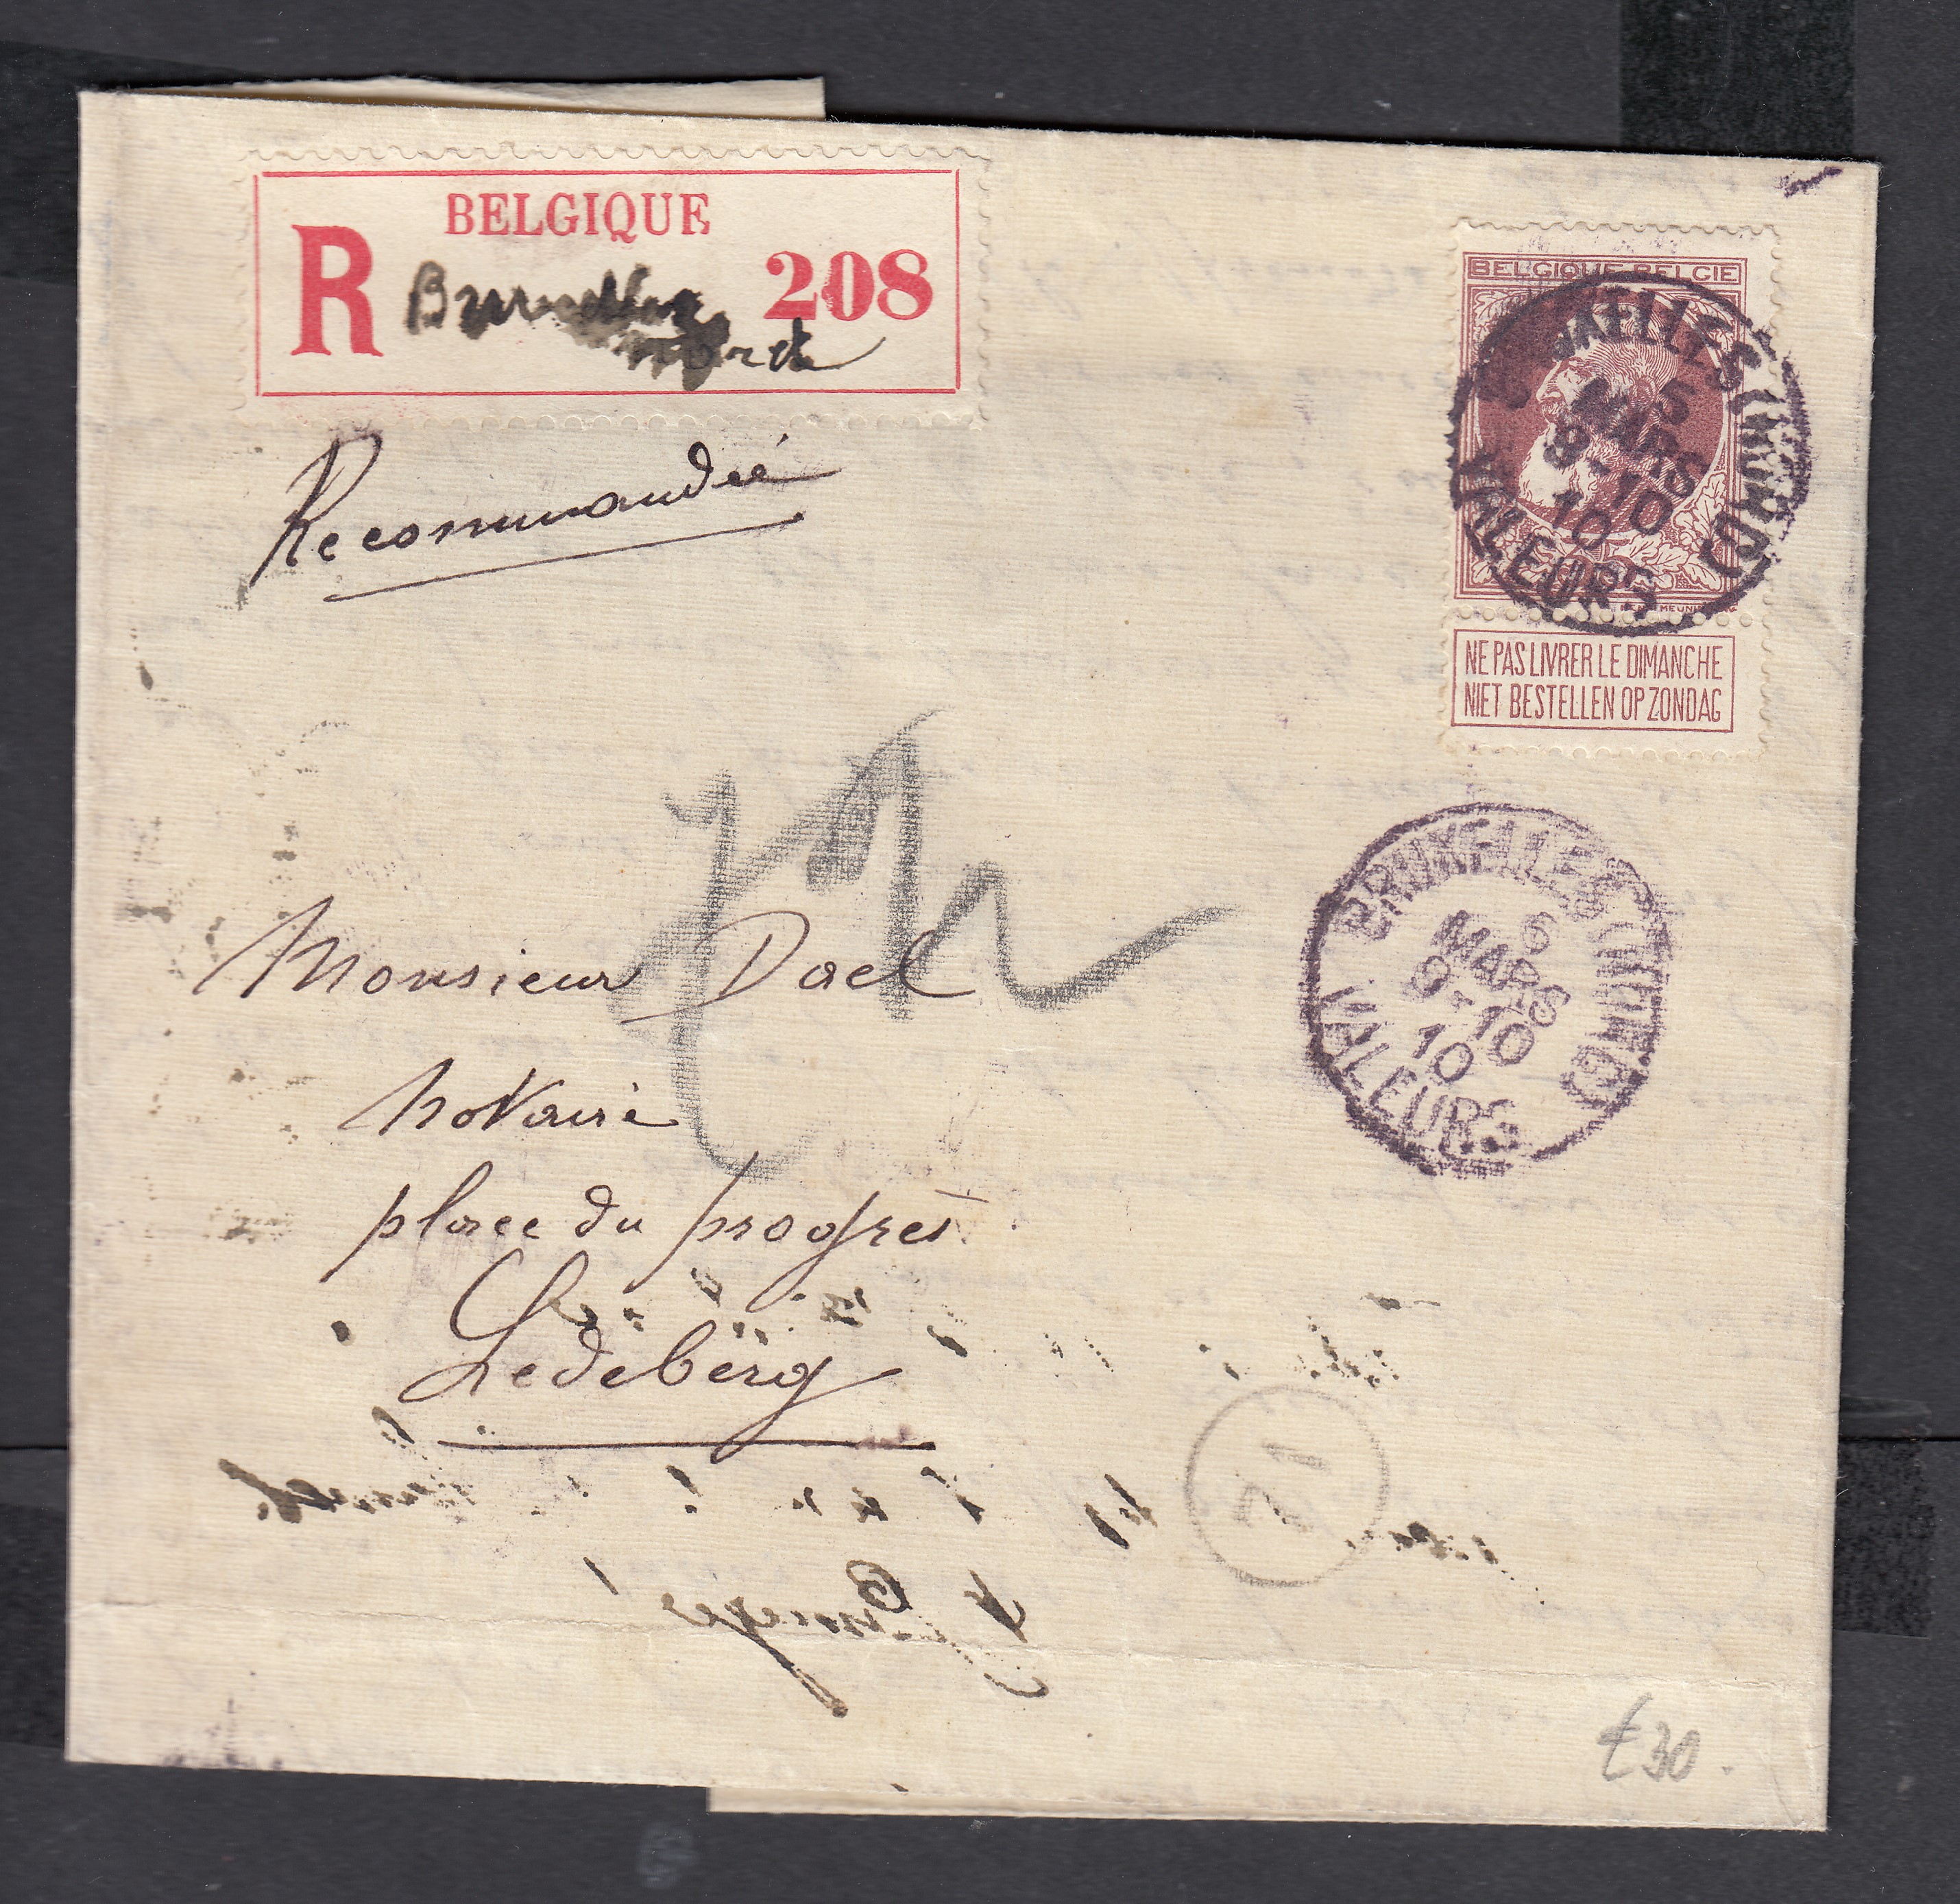 BELGIQUE
R Bruxelles 208
nord
Recommandée
BELGIQUE-BELGIE
BRUXELLES (NORD)
6
MARS
9-10
10
VALEURS
NE PAS LIVRER LE DIMANCHE
NIET BESTELLEN OP ZONDAG
BRUXELLES (NORD)
6
MARS
9-10
10
VALEURS
Monsieur Dael
notaire
place du progrès
Ledeberg
71
£30.